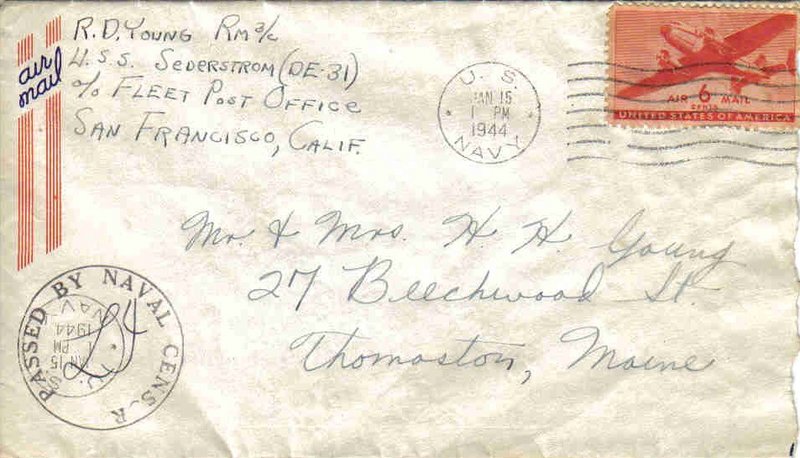 air
mail
R.D. YOUNG RM 3/c
U.S.S. SEDERSTROM (DE-31)
c/o FLEET POST OFFICE
SAN FRANCISCO, CALIF.
U. S.
JAN 15
1 PM
1944
NAVY
AIR 6 MAIL
CENTS
UNITED STATES OF AMERICA
Mr. & Mrs. H. H. Young
27 Beechwood St.
Thomaston, Maine
PASSED BY NAVAL CENS_R
U. S.
JAN 15
1 PM
1944
NAV